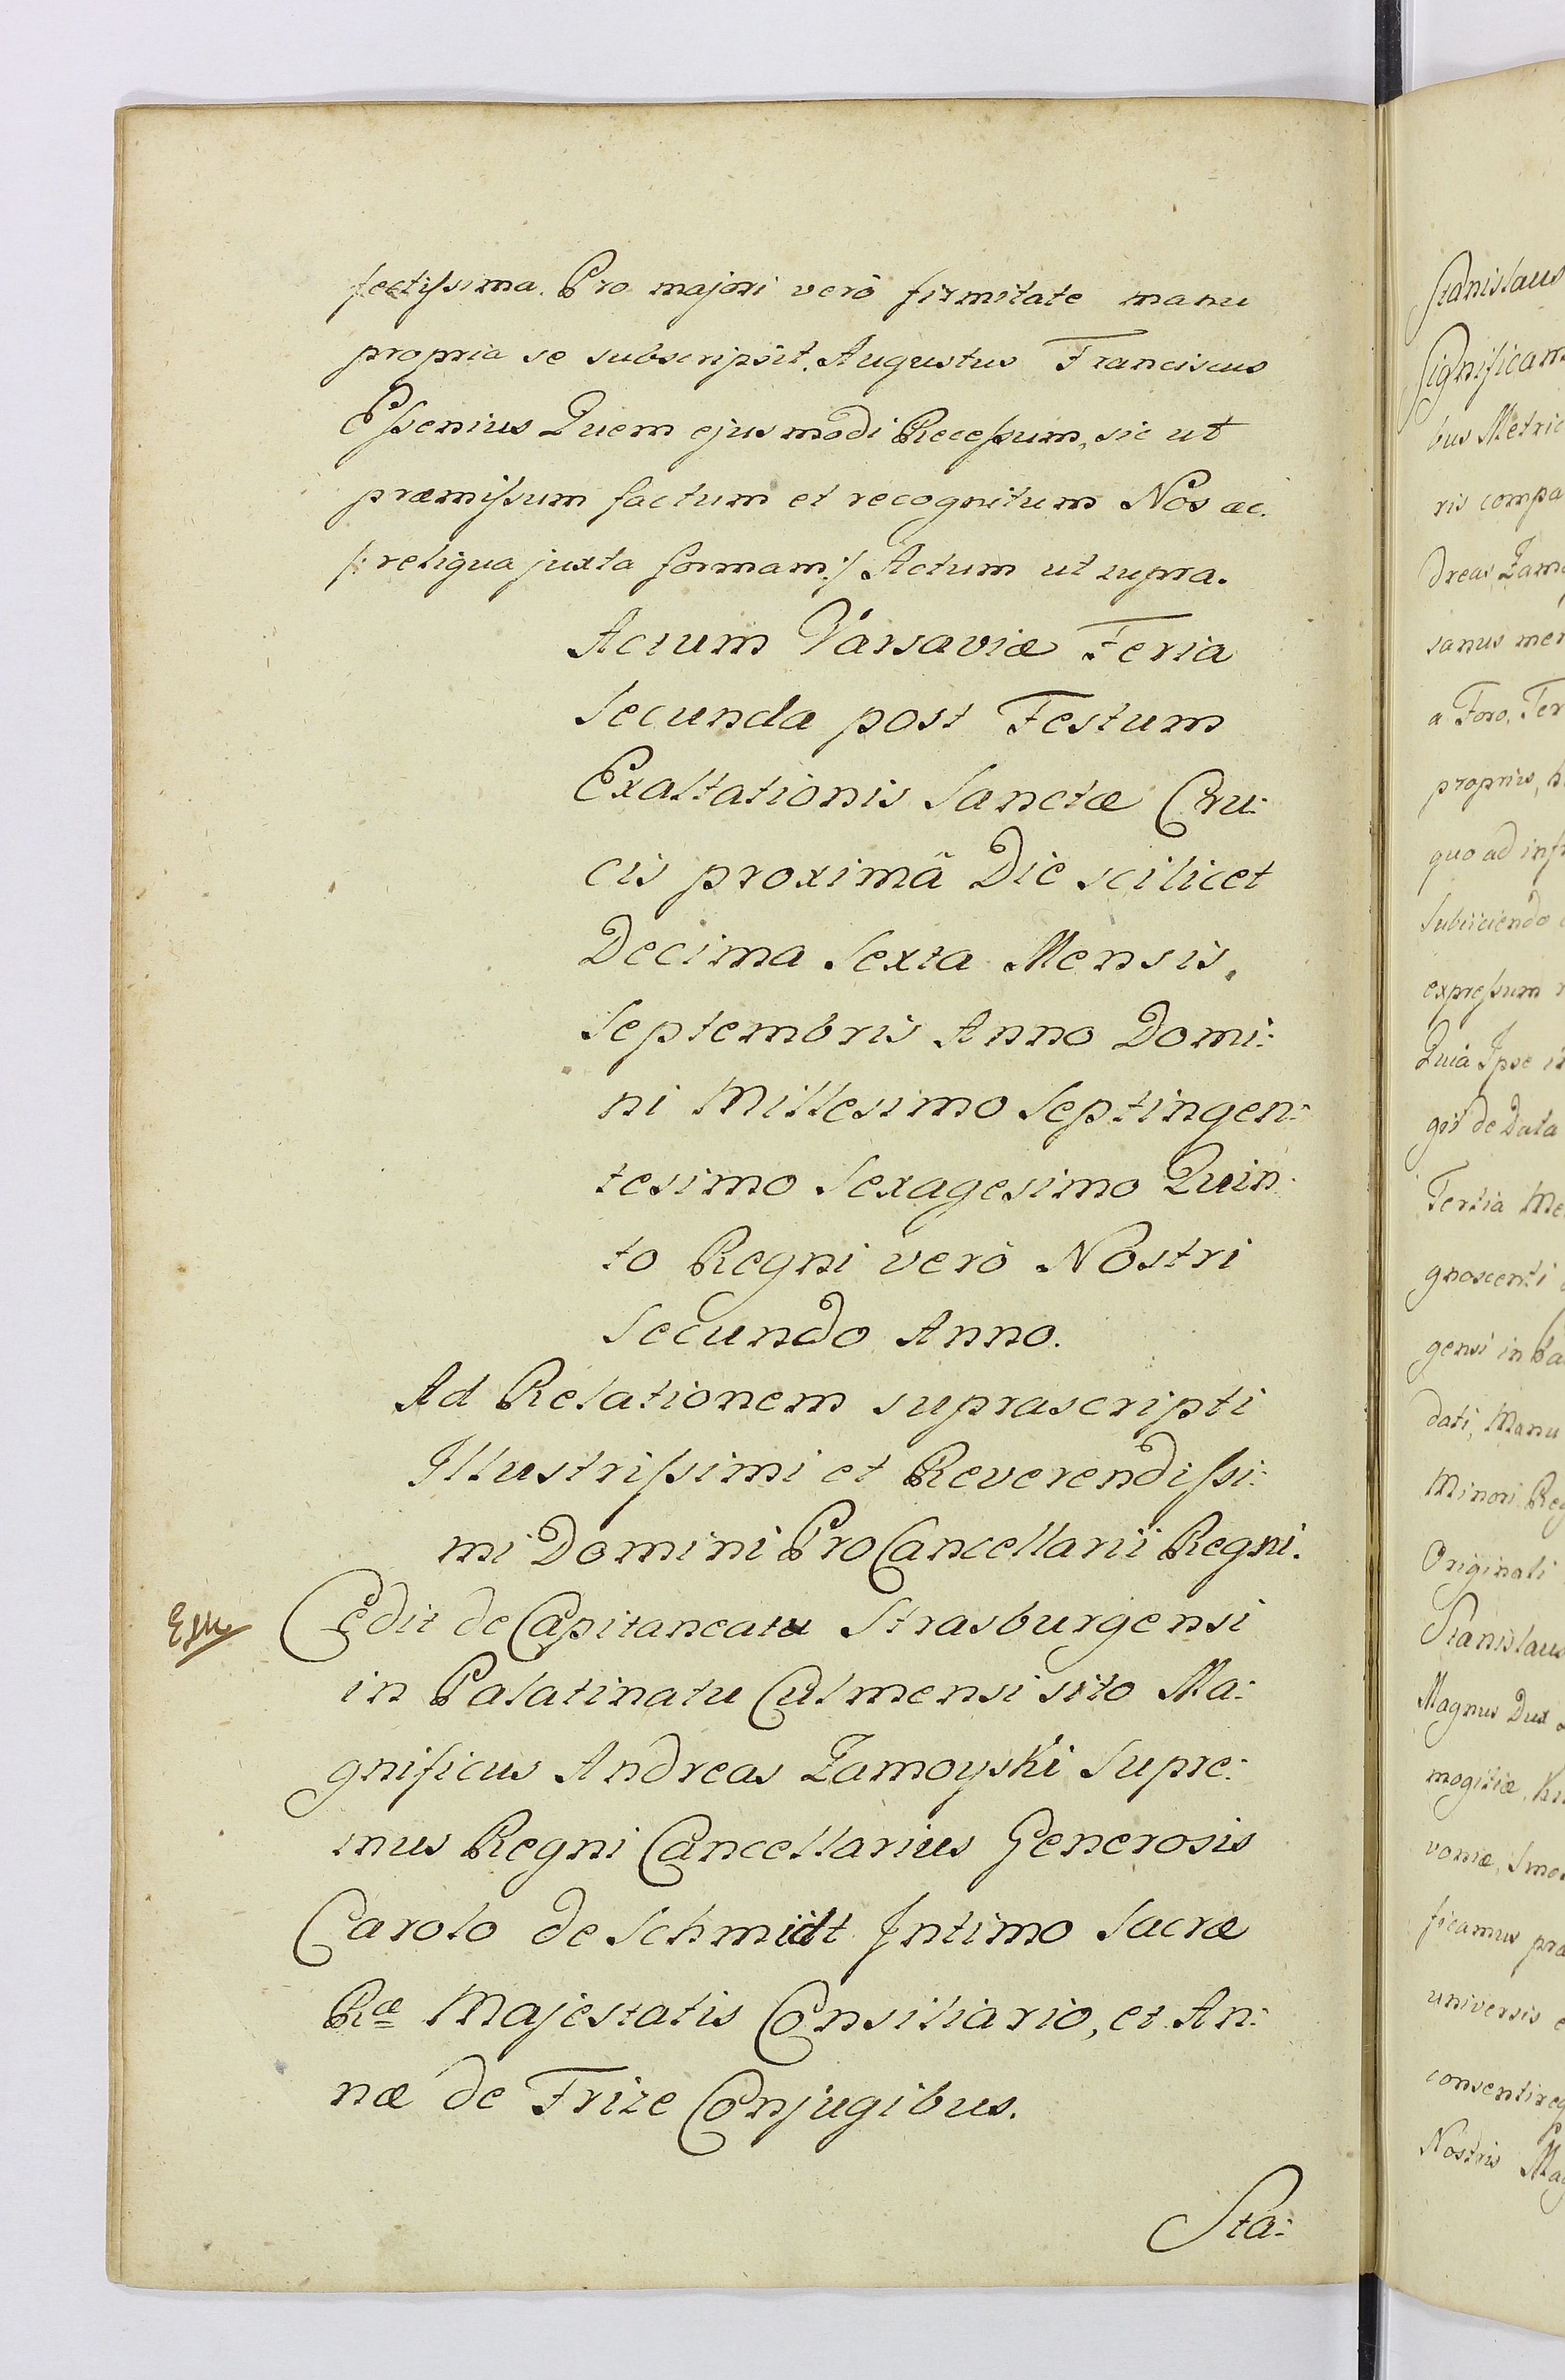 fectissima. Pro majori verò firmitate manu
propria se subscripsit. Augustus Franciscus
Essenius Quem ejusmodi Recessum, sic ut
præmissum factum et recognitum Nos ac.
/: reliqua juxta formam :/ Actum ut supra.
Actum Varsaviæ Feria
Secunda post Festum
Exaltationis Sanctæ Cru:
cis proximâ Die scilicet
Decima Sexta Mensis
Septembris Anno Domi:
ni Millesimo Septingen:
tesimo Sexagesimo Quin:
to Regni verò Nostri
Secundo Anno.
Ad Relationem suprascripti
Illustrissimi et Reverendissi:
mi Domini ProCancellarii Regni.
Cedit de Capitaneatu Strasburgensi
in Palatinatu Culmensi sito Ma:
gnificus Andreas Zamoyski Supre:
mus Regni Cancellarius Generosis
Carolo de Schmidt Intimo Sacræ
Ræ Majestatis Consiliario, et An:
næ de Frize Conjugibus.
Sta:
Stanislaus
Significam
bus Metric
ris compa
dreas Zam
sanus men
a Foro, Ter
proprius, h
quo ad inf
Subiiciendo
expressum
Quia Ipse
gis de Data
Tertia Me
gnoscenti
gensi in
dati, Manu
Minori Reg
Originali
Stanislaus
Magnus Dux
mogitiæ,
voniæ, Smo
ficamus præ
universis
consentireq
Nostris Mag